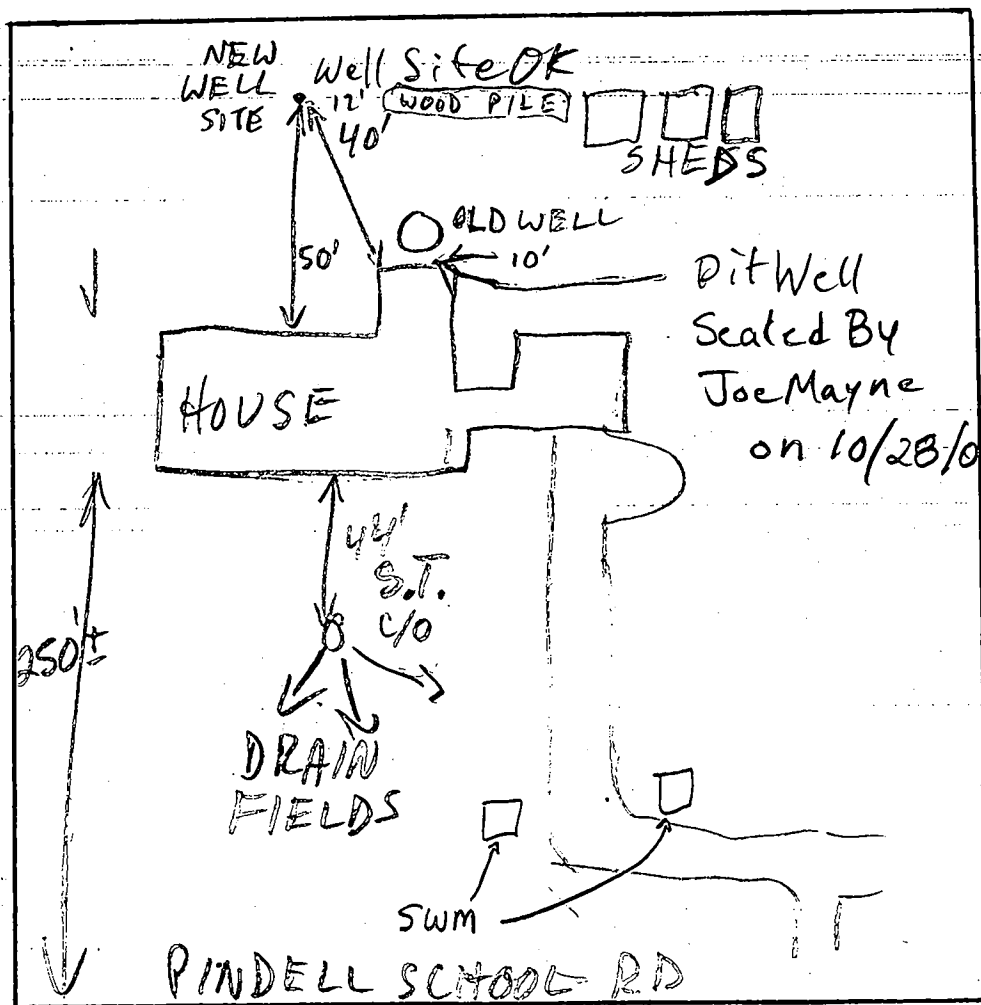 NEW
WELL
SITE
Well Site OK
12'
WOOD PILE
40'
SHEDS
OLD WELL
10'
50'
Pit Well
Sealed By
Joe Mayne
on 10/28/0
HOUSE
44'
S.T.
C/O
250'±
DRAIN
FIELDS
SWM
PINDELL SCHOOL RD